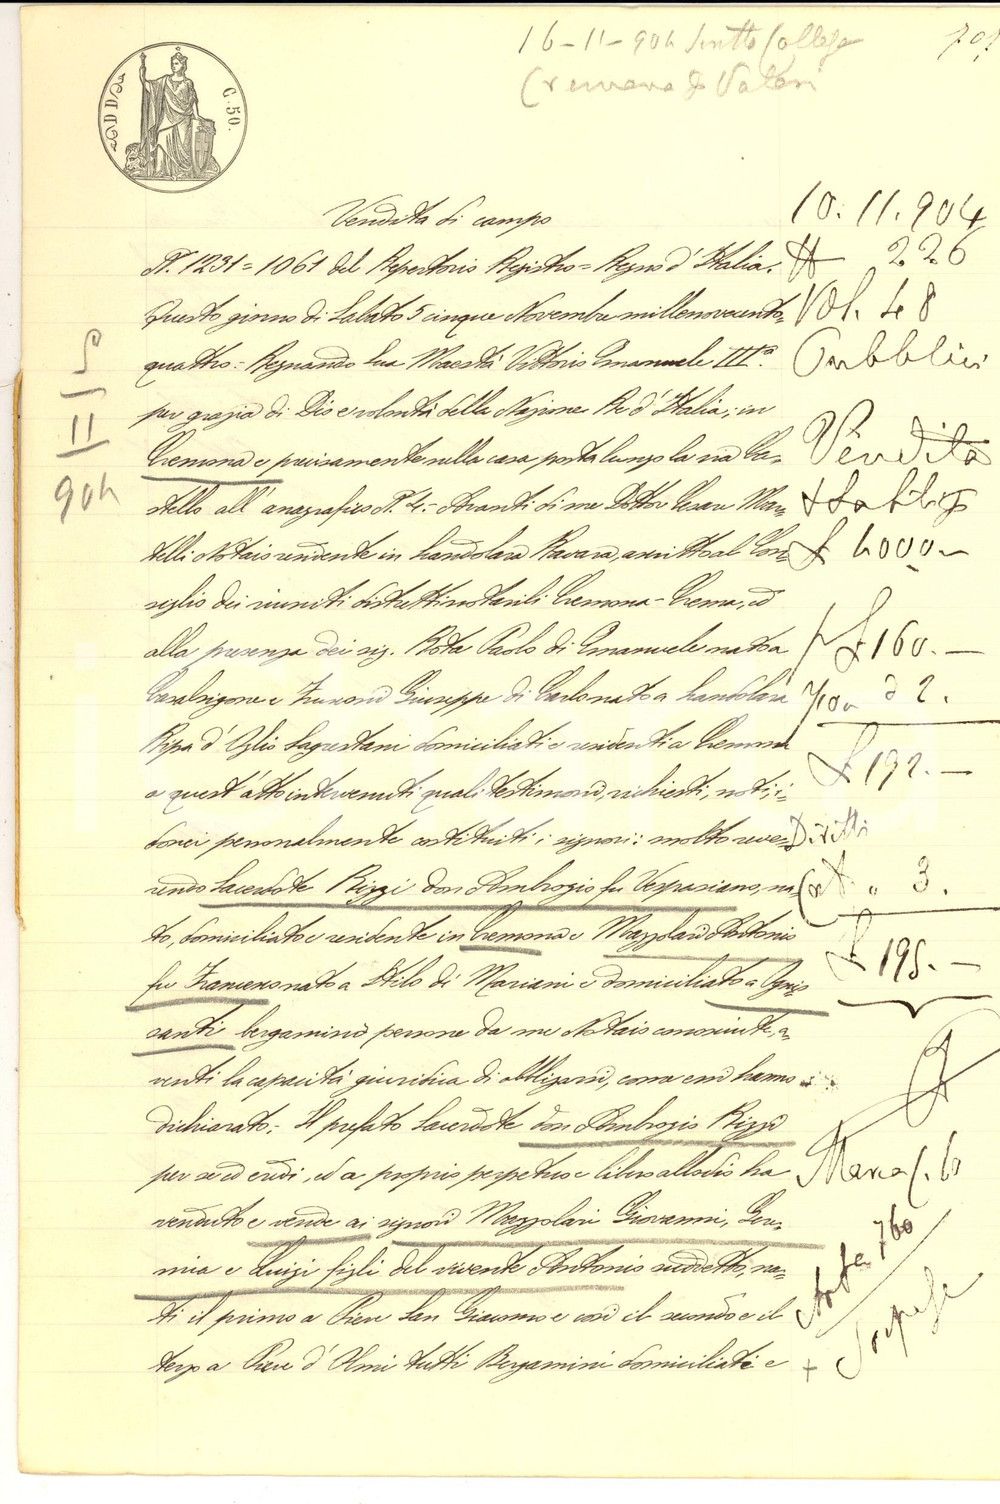 16-11-904
C. 50.
10. 11. 904
Vendita di campo
N. 1231 = 1061 del Repertorio Registro = Regno d'Italia.
226
Questo giorno di Sabato 5 cinque Novembre millenovecento-
Vol. 48
quattro: Regnando Sua Maestà Vittorio Emanuele III°.
Pubblici
per grazia di Dio e volontà della Nazione Re d'Italia; in
Cremona e precisamente nella casa posta lungo la via Ca-
Vendita
stello all'anagrafico N. 4. Avanti di me Dottor Cesare Man-
telli Notaio residente in Scandolara Ravara, ascritto al Con-
£ 4000
siglio dei riuniti distretti notarili Cremona-Crema, ed
alla presenza dei sig. Rota Paolo di Emanuele nato a
£ 160. —
Casalsigone e Giuseppe di Carlo nato a Scandolara
32.
Ripa d'Oglio Sagrestani domiciliati e residenti a Cremona
£ 192. —
a quest'atto intervenuti quali testimoni, richiesti, noti, i-
donei personalmente costituiti i signori: molto reve-
Diritti
rendo Sacerdote Rizzi don Ambrogio fu Vespasiano, na-
Cat. " 3.
to, domiciliato e residente in Cremona e Mazzolari Antonio
£ 195. —
fu Francesco nato a Stilo di Mariani e domiciliato a Ognis-
santi bergamino persone da me Notaio conosciute, a-
venti la capacità giuridica di obbligarsi, come essi hanno
dichiarato: Il prefato Sacerdote don Ambrogio Rizzi
per sè ed eredi, ed a proprio perpetuo e libero allodio ha
venduto e vende ai signori Mazzolari Giovanni, Gere-
mia e Luigi figli del vivente Antonio suddetto, na-
760
ti il primo a Pieve San Giacomo e così il secondo e il
terzo a Pieve d'Olmi tutti Bergamini domiciliati e
5
11
904